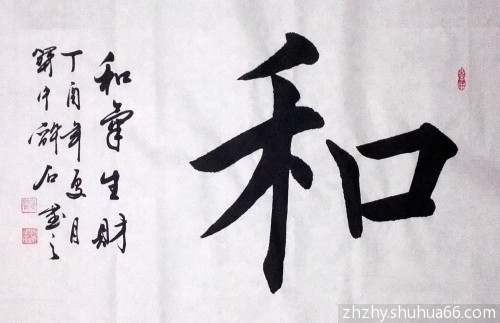 和
和氣生財
丁酉年夏月
中許石書之
zhzhy.shuhua66.com